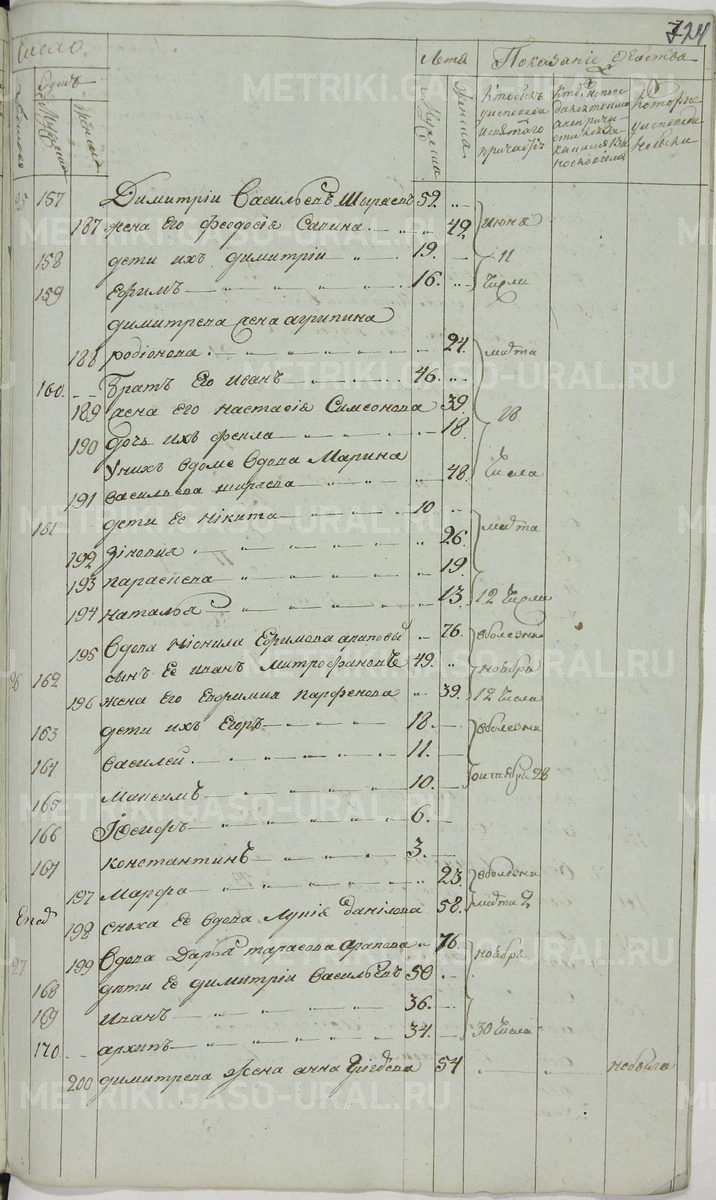 724
Число Лѣта Показаніе Дѣйства
Душъ
Мужеска Женска Мужеска Женска Кто былъ у исповеди и святаго причастія Которые у исповеди не были
25 157 Димитріи Васильевъ Шыряевъ 52. „
187 жена Его Феодосія Савина „ 42 Июня
158 дети ихъ Димитріи „ 19. 11
159 Ефимъ „ 16. „ числа
димитрева жена агрипина
188 родіонова „ 24. марта
160. Братъ Его Иванъ „ 46. „
189 жена Его настасія Симеонова 39 18
190 дочь ихъ фекла „ 18.
У нихъ в доме вдова Марина
191 васильева шыряева „ 48. числа
161 дети Ее никита „ 10 „
192 зіновия „ 26. марта
193 параскева „ 19.
194 наталья „ 13. 12 числа
195 вдова Неонила Ефимова арапова „ 76. в болезни
26 162 сынъ Ее иванъ Митрофановъ 49. „ ноября
196 жена Его Евфимия Парфенова „ 39. 12 числа
163 дети ихъ Егоръ „ 18. в болезни
164 василей „ 11.
165 Максимъ „ 10. октября 28
166 Іосифъ „ 6.
167 константинъ „ 3.
197 Марфа „ 23. в болезни
198 сноха Ее вдова Лукия данілова 58. марта 2
27 199 Вдова Дарья тарасова Арапова „ 76. ноября
168 дѣти Ее димитріи Васильевъ 50
169 Иванъ „ 36.
170. архипъ „ 34. 30 числа
200 димитрева жена анна 54 не была
METRIKI.GASO-URAL.RU